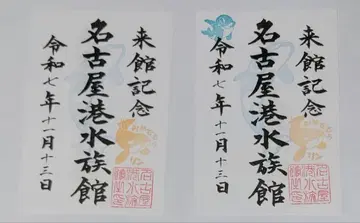 来館記念
名古屋港水族館
令和七年十一月十三日
リン
来館記念
名古屋港水族館
令和七年十一月十三日
リン